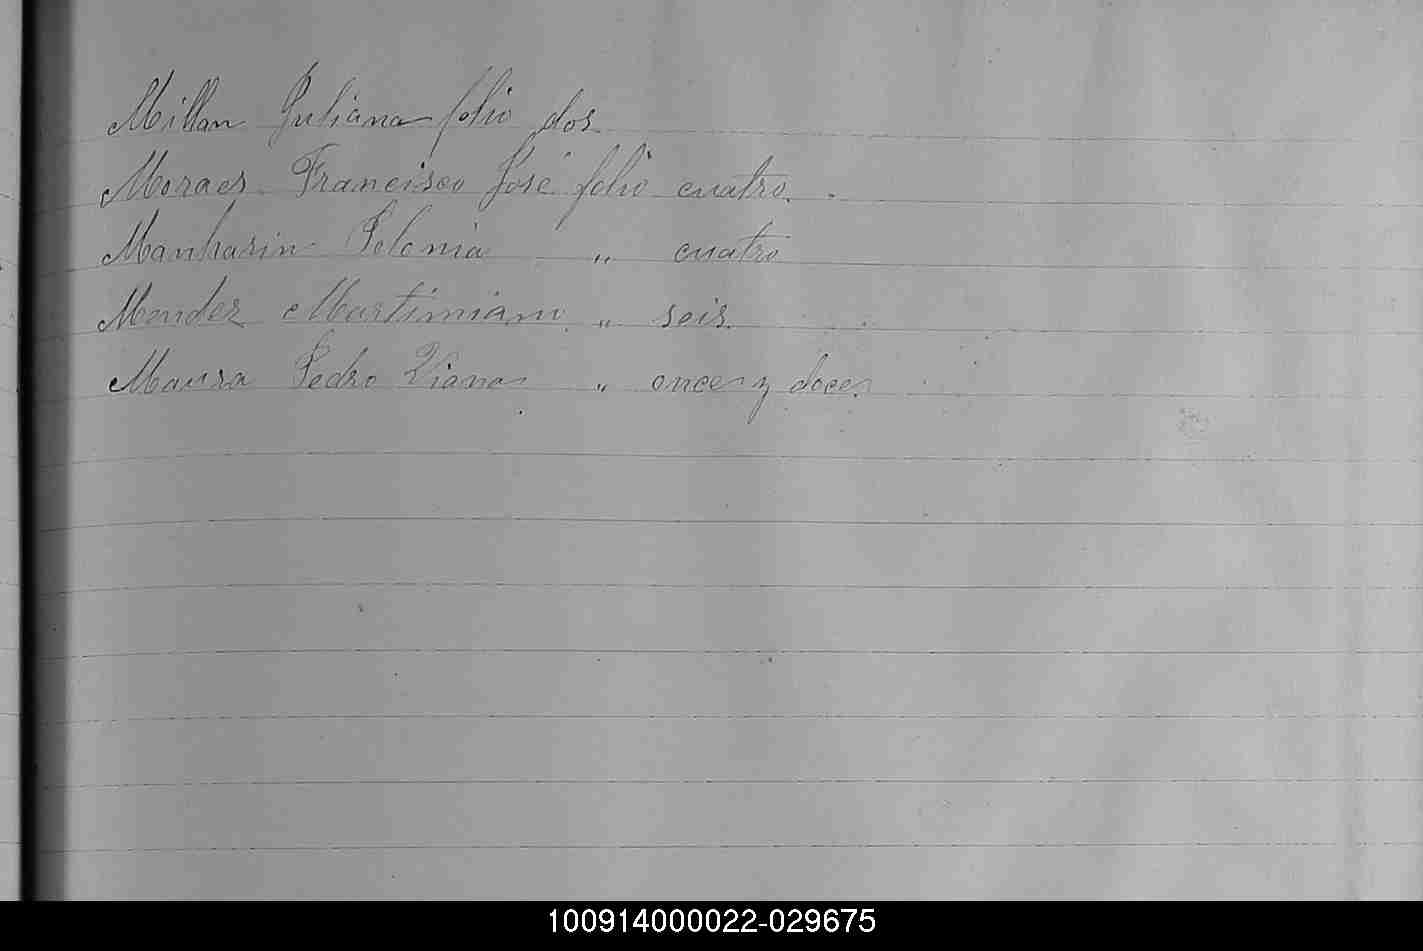 Millan Juliana folio dos
Moraes Francisco José folio cuatro.
Polonia " cuatro
Mendez Martimiano " seis.
Maura Pedro Viana " once y doce.
100914000022-029675